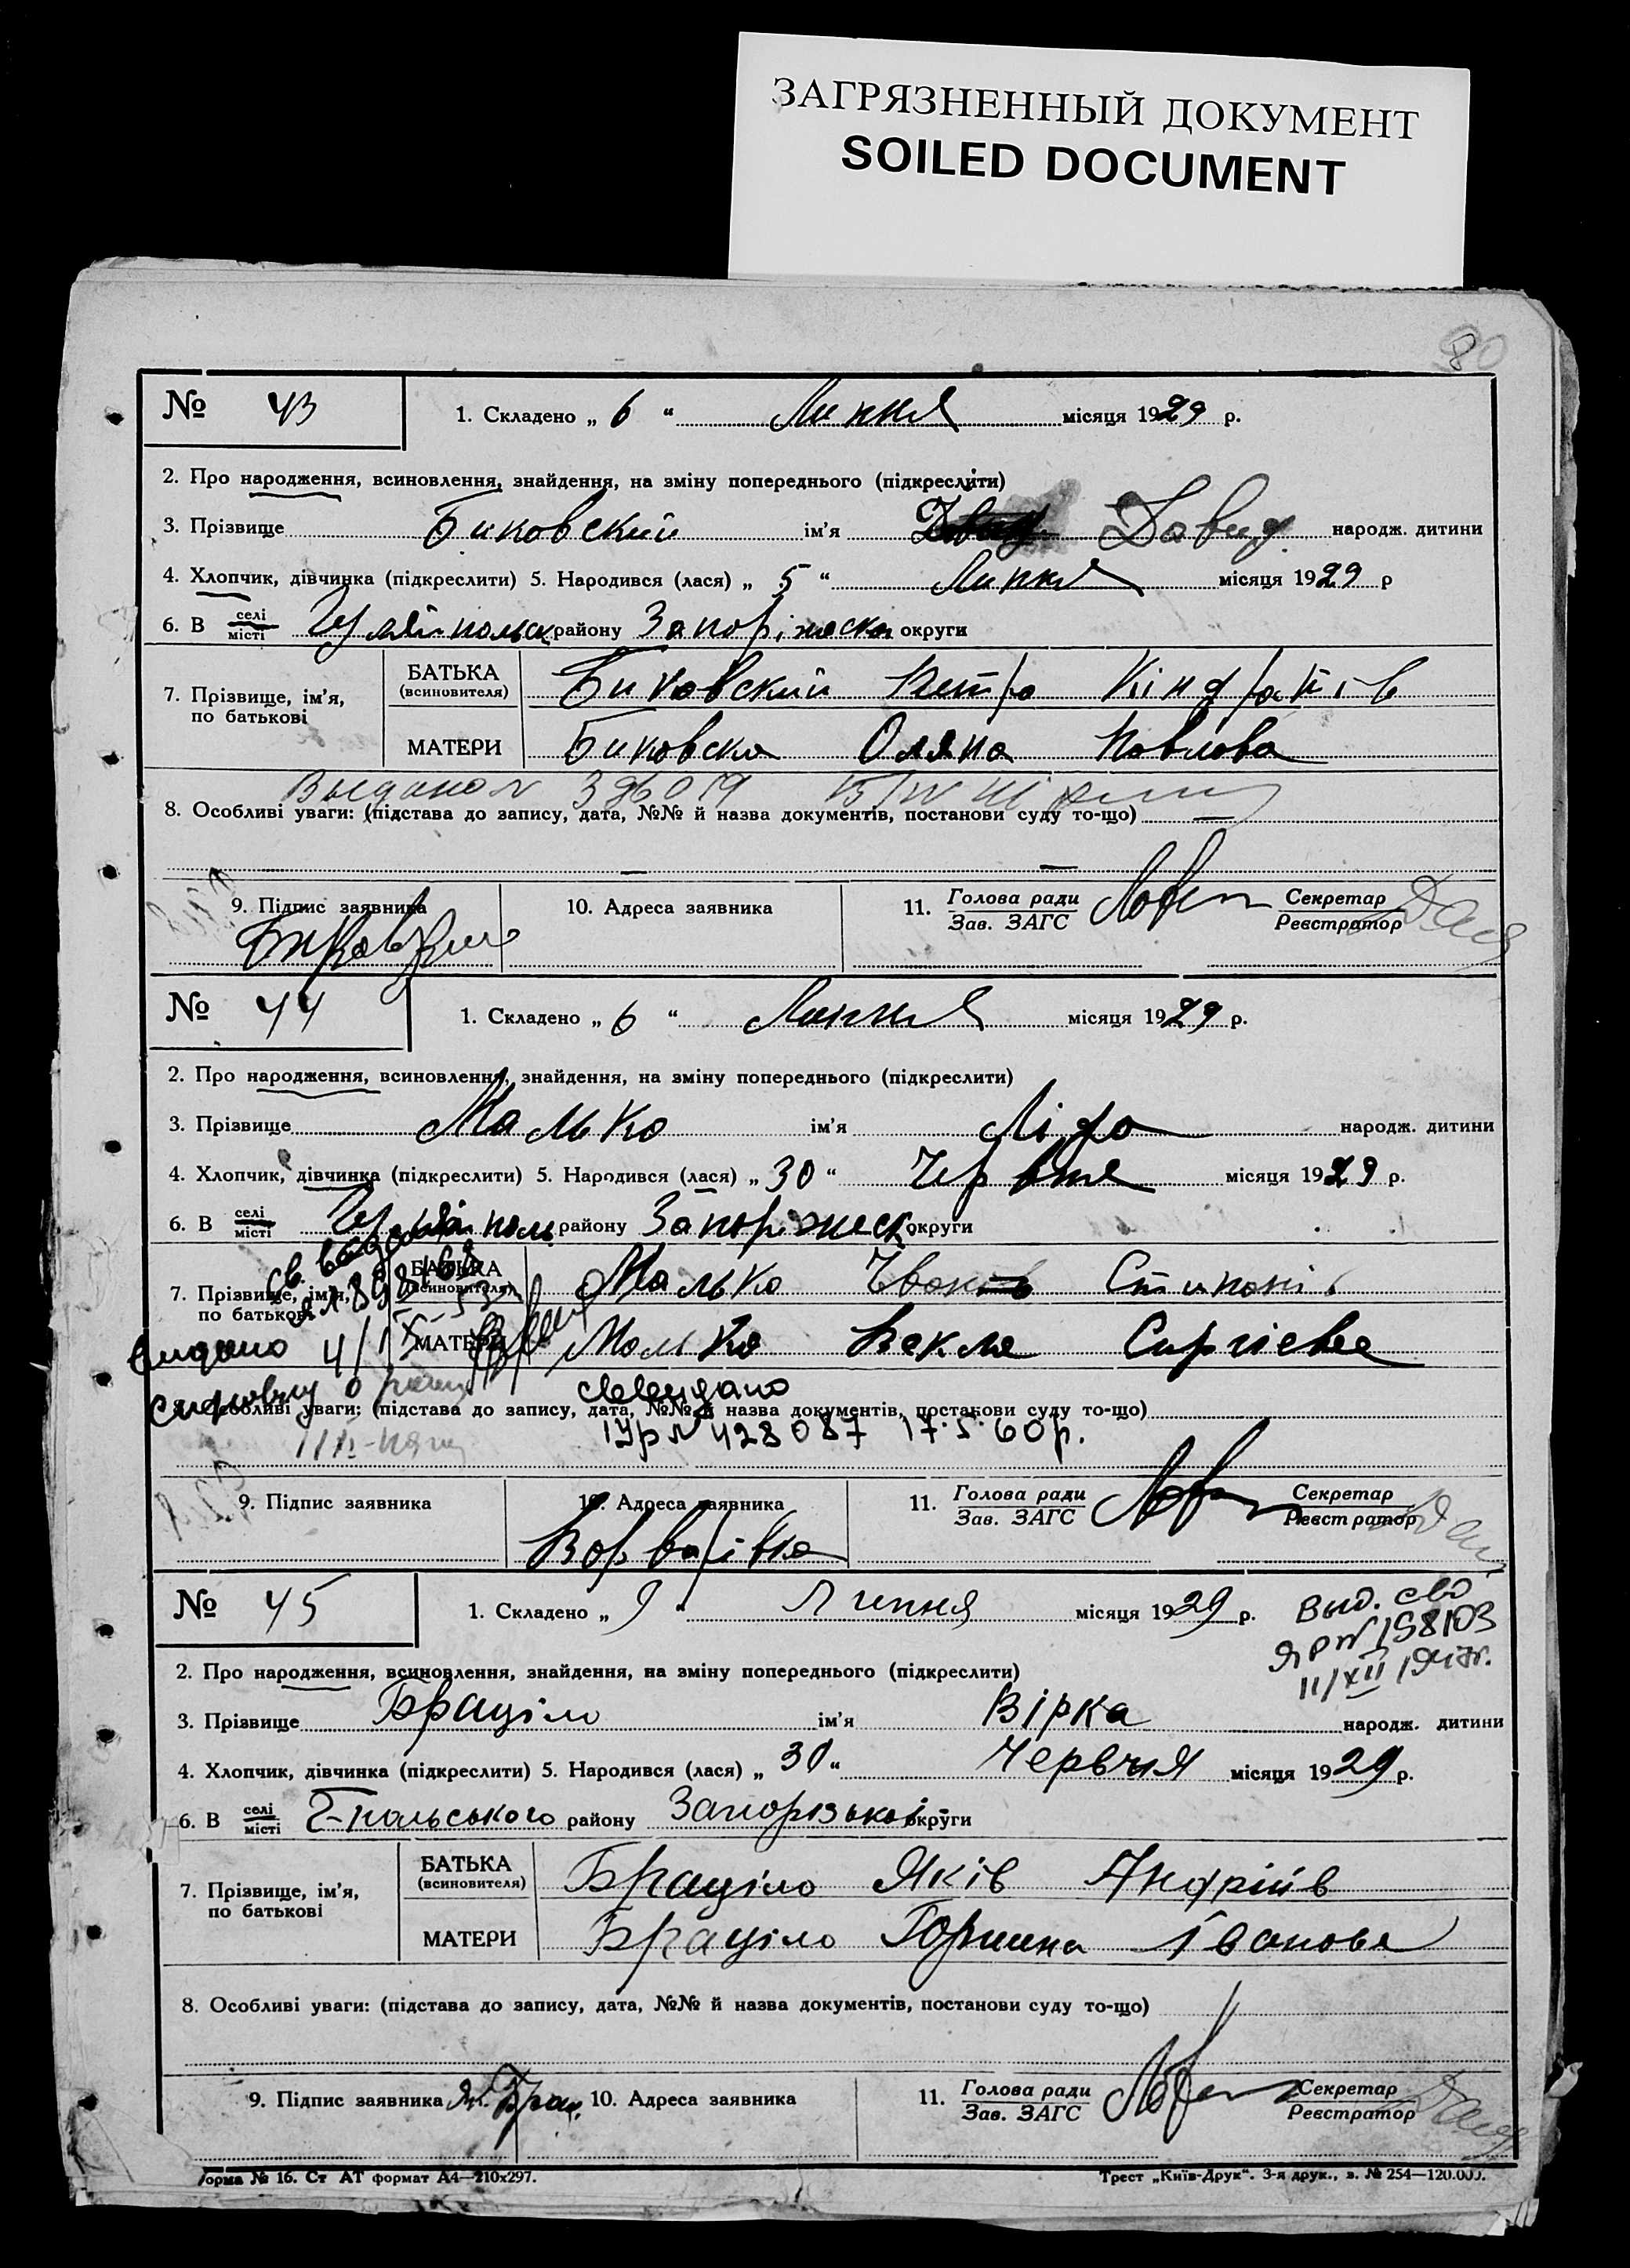 ЗАГРЯЗНЕННЫЙ ДОКУМЕНТ
SOILED DOCUMENT
80
№ 43 1. Складено „ 6 “ Липня місяця 1929 р.
2. Про народження, всиновлення, знайдення, на зміну попереднього (підкреслити)
3. Прізвище Биковский ім'я Давид народж. дитини
4. Хлопчик, дівчинка (підкреслити) 5. Народився (лася) „ 5 “ Липня місяця 1929 р
6. В селі місті Гуляй-польск району Запоріжска округи
7. Прізвище, ім'я, по батькові БАТЬКА (всиновителя) Биковский Петро Кіндратів
МАТЕРИ Биковска Оляна Павлова
Выдано № 396019
8. Особливі уваги: (підстава до запису, дата, №№ й назва документів, постанови суду то-що)
9. Підпис заявника 10. Адреса заявника 11. Голова ради Зав. ЗАГС Секретар Реєстратор
№ 44 1. Складено „ 6 “ Липня місяця 1929 р.
2. Про народження, всиновлення, знайдення, на зміну попереднього (підкреслити)
3. Прізвище Малько ім'я Ліда народж. дитини
4. Хлопчик, дівчинка (підкреслити) 5. Народився (лася) „ 30 “ Червня місяця 1929 р.
6. В селі місті Гуляй поль району Запоріжск округи
7. Прізвище, ім'я, по батькові БАТЬКА (всиновителя) Малько Іван Степанів
МАТЕРИ Малько Векла Сиргіевва
св. видано
видано
св видано
8. Особливі уваги: (підстава до запису, дата, №№ й назва документів, постанови суду то-що)
ІУр № 428087 17.5.60р.
9. Підпис заявника 10. Адреса заявника 11. Голова ради Зав. ЗАГС Секретар Реєстратор
Варварівка
№ 45 1. Складено „ 9 “ Липня місяця 1929 р.
Выд. сво
ЯР № 158103
11/XII 1947г.
2. Про народження, всиновлення, знайдення, на зміну попереднього (підкреслити)
3. Прізвище Браціло ім'я Вірка народж. дитини
4. Хлопчик, дівчинка (підкреслити) 5. Народився (лася) „ 30 “ Червчня місяця 1929 р.
6. В селі місті Г-польського району Запорізької округи
7. Прізвище, ім'я, по батькові БАТЬКА (всиновителя) Браціло Яків Андріїв
МАТЕРИ Браціло Горпина Іванова
8. Особливі уваги: (підстава до запису, дата, №№ й назва документів, постанови суду то-що)
9. Підпис заявника Як. Брац. 10. Адреса заявника 11. Голова ради Зав. ЗАГС Секретар Реєстратор
форма № 16. Ст АТ формат А4—210х297. Трест „Київ-Друк“. 3-я друк., з. № 254—120.000.